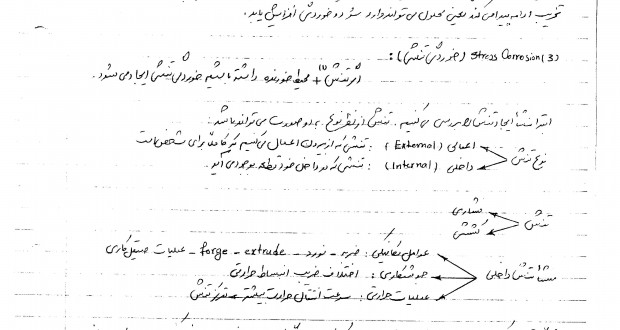 تخریب ادامه پیدا می کند یعنی محلول می تواند وارد شود و خوردگی افزایش یابد.
(3) Stress Corrosion (خوردگی تنشی):
اگر تنش + محیط خورنده داشته باشیم خوردگی تنشی ایجاد می شود.
ابتدا منشأ ایجاد تنش را بررسی می کنیم. تنش از نظر نوع به دو صورت می تواند باشد:
نوع تنش
اعمالی (External): تنشی که از بیرون اعمال می کنیم که کاملاً برای مشخص است
داخلی (Internal): تنشی که در داخل خود قطعه بوجود می آید.
تنش
فشاری
کششی
منشأ تنش داخلی
عوامل مکانیکی: ضربه - نورد - forge - extrude - عملیات صیقل کاری
جوشکاری: اختلاف ضریب انبساط حرارتی
عملیات حرارتی: سرعت انتقال حرارت بیشتر ← تمرکز تنش